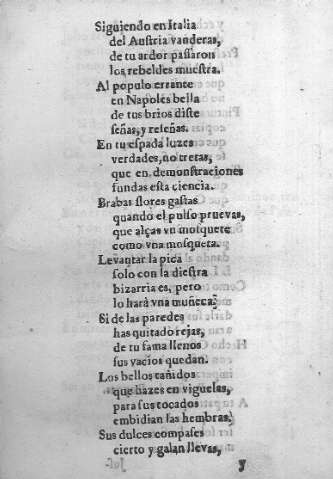 Siguiendo en Italia
del Austria vanderas,
de tu ardor passaron
los rebeldes muestra.
Al populo errante
en Napoles bella
de tus brios diste
señas, y reseñas.
En tu espada luzes
verdades, no tretas,
que en demonstraciones
fundas esta ciencia.
Brabas flores gastas
quando el pulso pruevas,
que alças vn mosquete
como vna mosqueta.
Levantar la pica
solo con la diestra
bizarria es, pero
lo hará vna muñeca.
Si de las paredes
has quitado rejas,
de tu fama llenos
sus vacios quedan.
Los bellos tañidos
que hazes en viguelas,
para sus tocados
embidian las hembras.
Sus dulces compases
cierto y galan llevas,
y